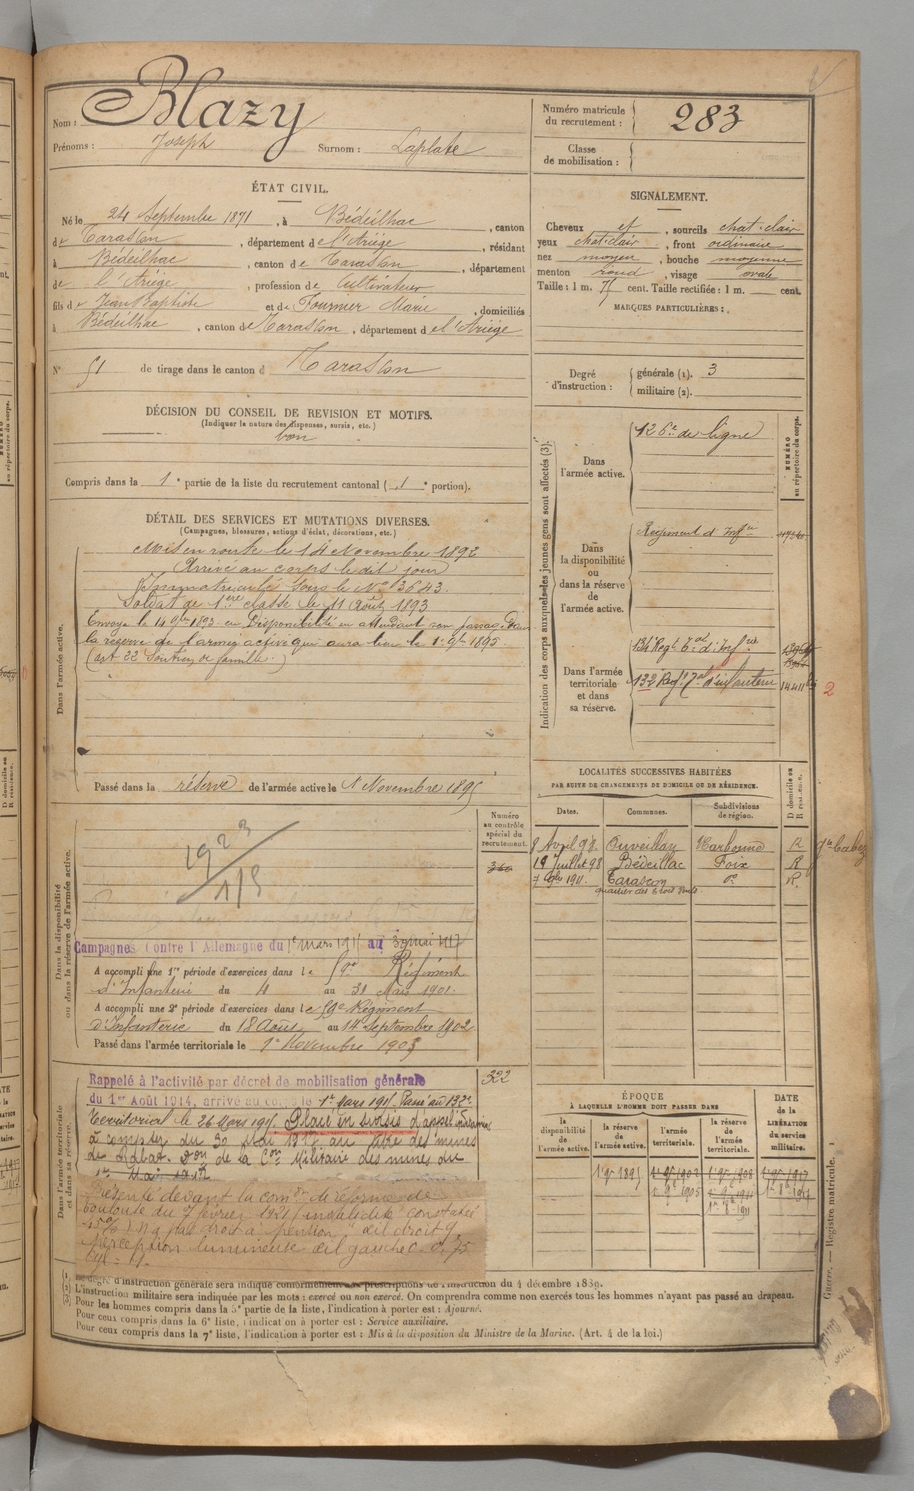 Nom : Blazy
Prénoms : Joseph Surnom : Laplate
Numéro matricule du recrutement : 283
Classe de mobilisation :
ÉTAT CIVIL.
Né le 24 Septembre 1871, à Bédeilhac, canton
de Tarascon, département de l'Ariège, résidant
à Bédeilhac, canton de Tarascon, département
de l'Ariège, profession de Cultivateur
fils de Jean Baptiste et de Fournier Marie, domiciliés
à Bédeilhac, canton de Tarascon, département de l'Ariège
N° 51 de tirage dans le canton d Tarascon
SIGNALEMENT.
Cheveux et, sourcils chat. clair
yeux chat. clair, front ordinaire
nez moyen, bouche moyenne
menton rond, visage ovale
Taille : 1 m. 75 cent. Taille rectifiée : 1 m. cent.
MARQUES PARTICULIÈRES :
Degré d'instruction : générale (1). 3
militaire (2).
DÉCISION DU CONSEIL DE REVISION ET MOTIFS.
(Indiquer la nature des dispenses, sursis, etc.)
bon
Compris dans la 1e partie de la liste du recrutement cantonal (1e portion).
DÉTAIL DES SERVICES ET MUTATIONS DIVERSES.
(Campagnes, blessures, actions d'éclat, décorations, etc.)
Dans l'armée active.
Mis en route le 14 Novembre 1892
Arrivé au corps le dit jour
Immatriculé sous le N° 3643.
Soldat de 1ère classe le 11 Août 1893
Envoyé le 14 9bre 1893 en Disponibilité en attendant son passage dans
la réserve de l'armée active qui aura lieu le 1er 9bre 1895
(art 22 Soutien de famille.)
Passé dans la réserve de l'armée active le 1 Novembre 1895
Indication des corps auxquels les jeunes gens sont affectés (3).
NUMÉRO au répertoire du corps.
Dans l'armée active.
126e de ligne
Dans la disponibilité ou dans la réserve de l'armée active.
Régiment d'Infie
Dans l'armée territoriale et dans sa réserve.
134 Regt d'Infrie
132 Regt d'infanterie
2
LOCALITÉS SUCCESSIVES HABITÉES
PAR SUITE DE CHANGEMENTS DE DOMICILE OU DE RÉSIDENCE.
Dates. Communes. Subdivisions de région. D domicile ou R résidence.
8 Avril 98 Ouveillan Narbonne R
19 Juillet 98 Bédeillac Foix R
1911 Tarascon do R
Dans la disponibilité ou dans la réserve de l'armée active.
Numéro au contrôle spécial du recrutement.
360
1923
Campagnes Contre l'Allemagne du 1er mars 1915 au 30 mai 1917
A accompli une 1re période d'exercices dans le 59e Régiment
d'Infanterie du 4 au 31 Mars 1901.
A accompli une 2e période d'exercices dans le 59e Régiment
d'Infanterie du 18 Août au 14 Septembre 1902
Passé dans l'armée territoriale le 1er Novembre 1905
Dans l'armée territoriale et dans sa réserve.
322
Rappelé à l'activité par décret de mobilisation générale
du 1er Août 1914, arrivé au corps le 1er Mars 1915 Passé au 132e
Territorial le 26 Mars 1915. Placé en sursis d'appel
à compter du 30 Mai 1917 au titre des mines
de la Con Militaire des mines du
Présenté devant la comon de réforme de
Toulouse du 7 février 1921 invalidité constatée
45% n'a pas droit à pension œil droit
perception lumineuse œil gauche
ÉPOQUE
À LAQUELLE L'HOMME DOIT PASSER DANS
DATE de la LIBÉRATION du service militaire.
la disponibilité de l'armée active. la réserve de l'armée active. l'armée territoriale. la réserve de l'armée territoriale.
1er 9bre 1895
Le degré d'instruction générale sera indiqué conformément aux prescriptions de l'instruction du 4 décembre 1889.
L'instruction militaire sera indiquée par les mots : exercé ou non exercé. On comprendra comme non exercés tous les hommes n'ayant pas passé au drapeau.
Pour les hommes compris dans la 5e partie de la liste, l'indication à porter est : Ajourné.
Pour ceux compris dans la 6e liste, l'indication à porter est : Service auxiliaire.
Pour ceux compris dans la 7e liste, l'indication à porter est : Mis à la disposition du Ministre de la Marine. (Art. 4 de la loi.)
Guerre. — Registre matricule.